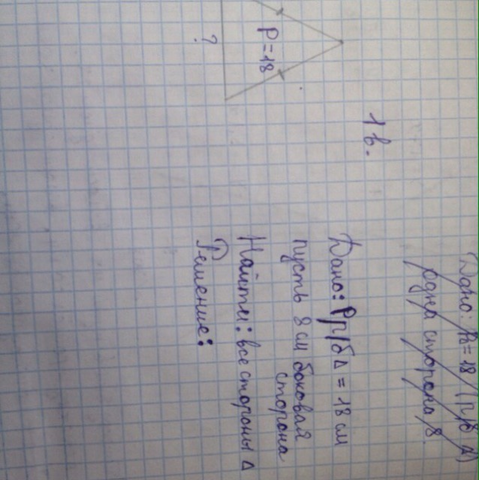 Дано: P₀ = 18 / (р/б Δ)
одна сторона 8.
1 в.
P = 18
?
Дано: P р/б Δ = 18 см
пусть 8 см боковая
сторона
Найти: все стороны Δ
Решение: